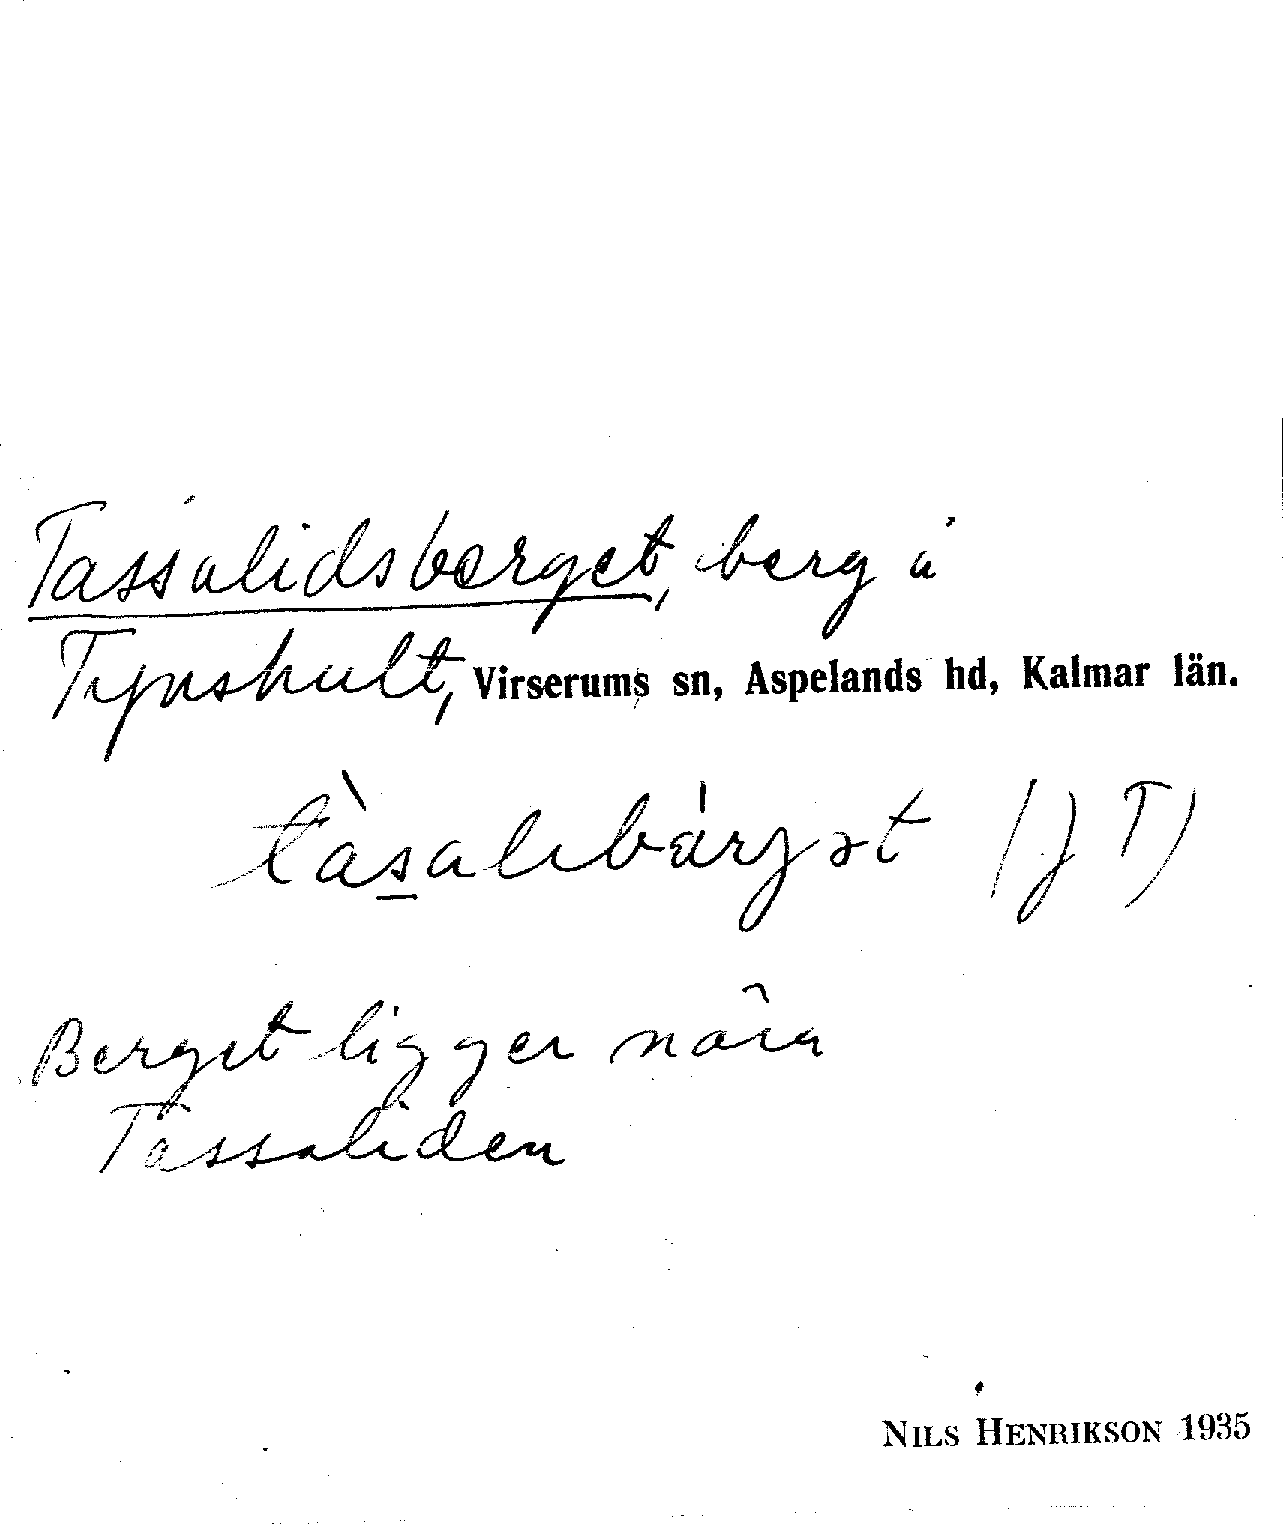 Tassalidsberget, berg å
Tynshult, Virserums sn, Aspelands hd, Kalmar län.
tàs̲alibárjət (J T)
Berget ligger nära
Tassaliden
NILS HENRIKSON 1935